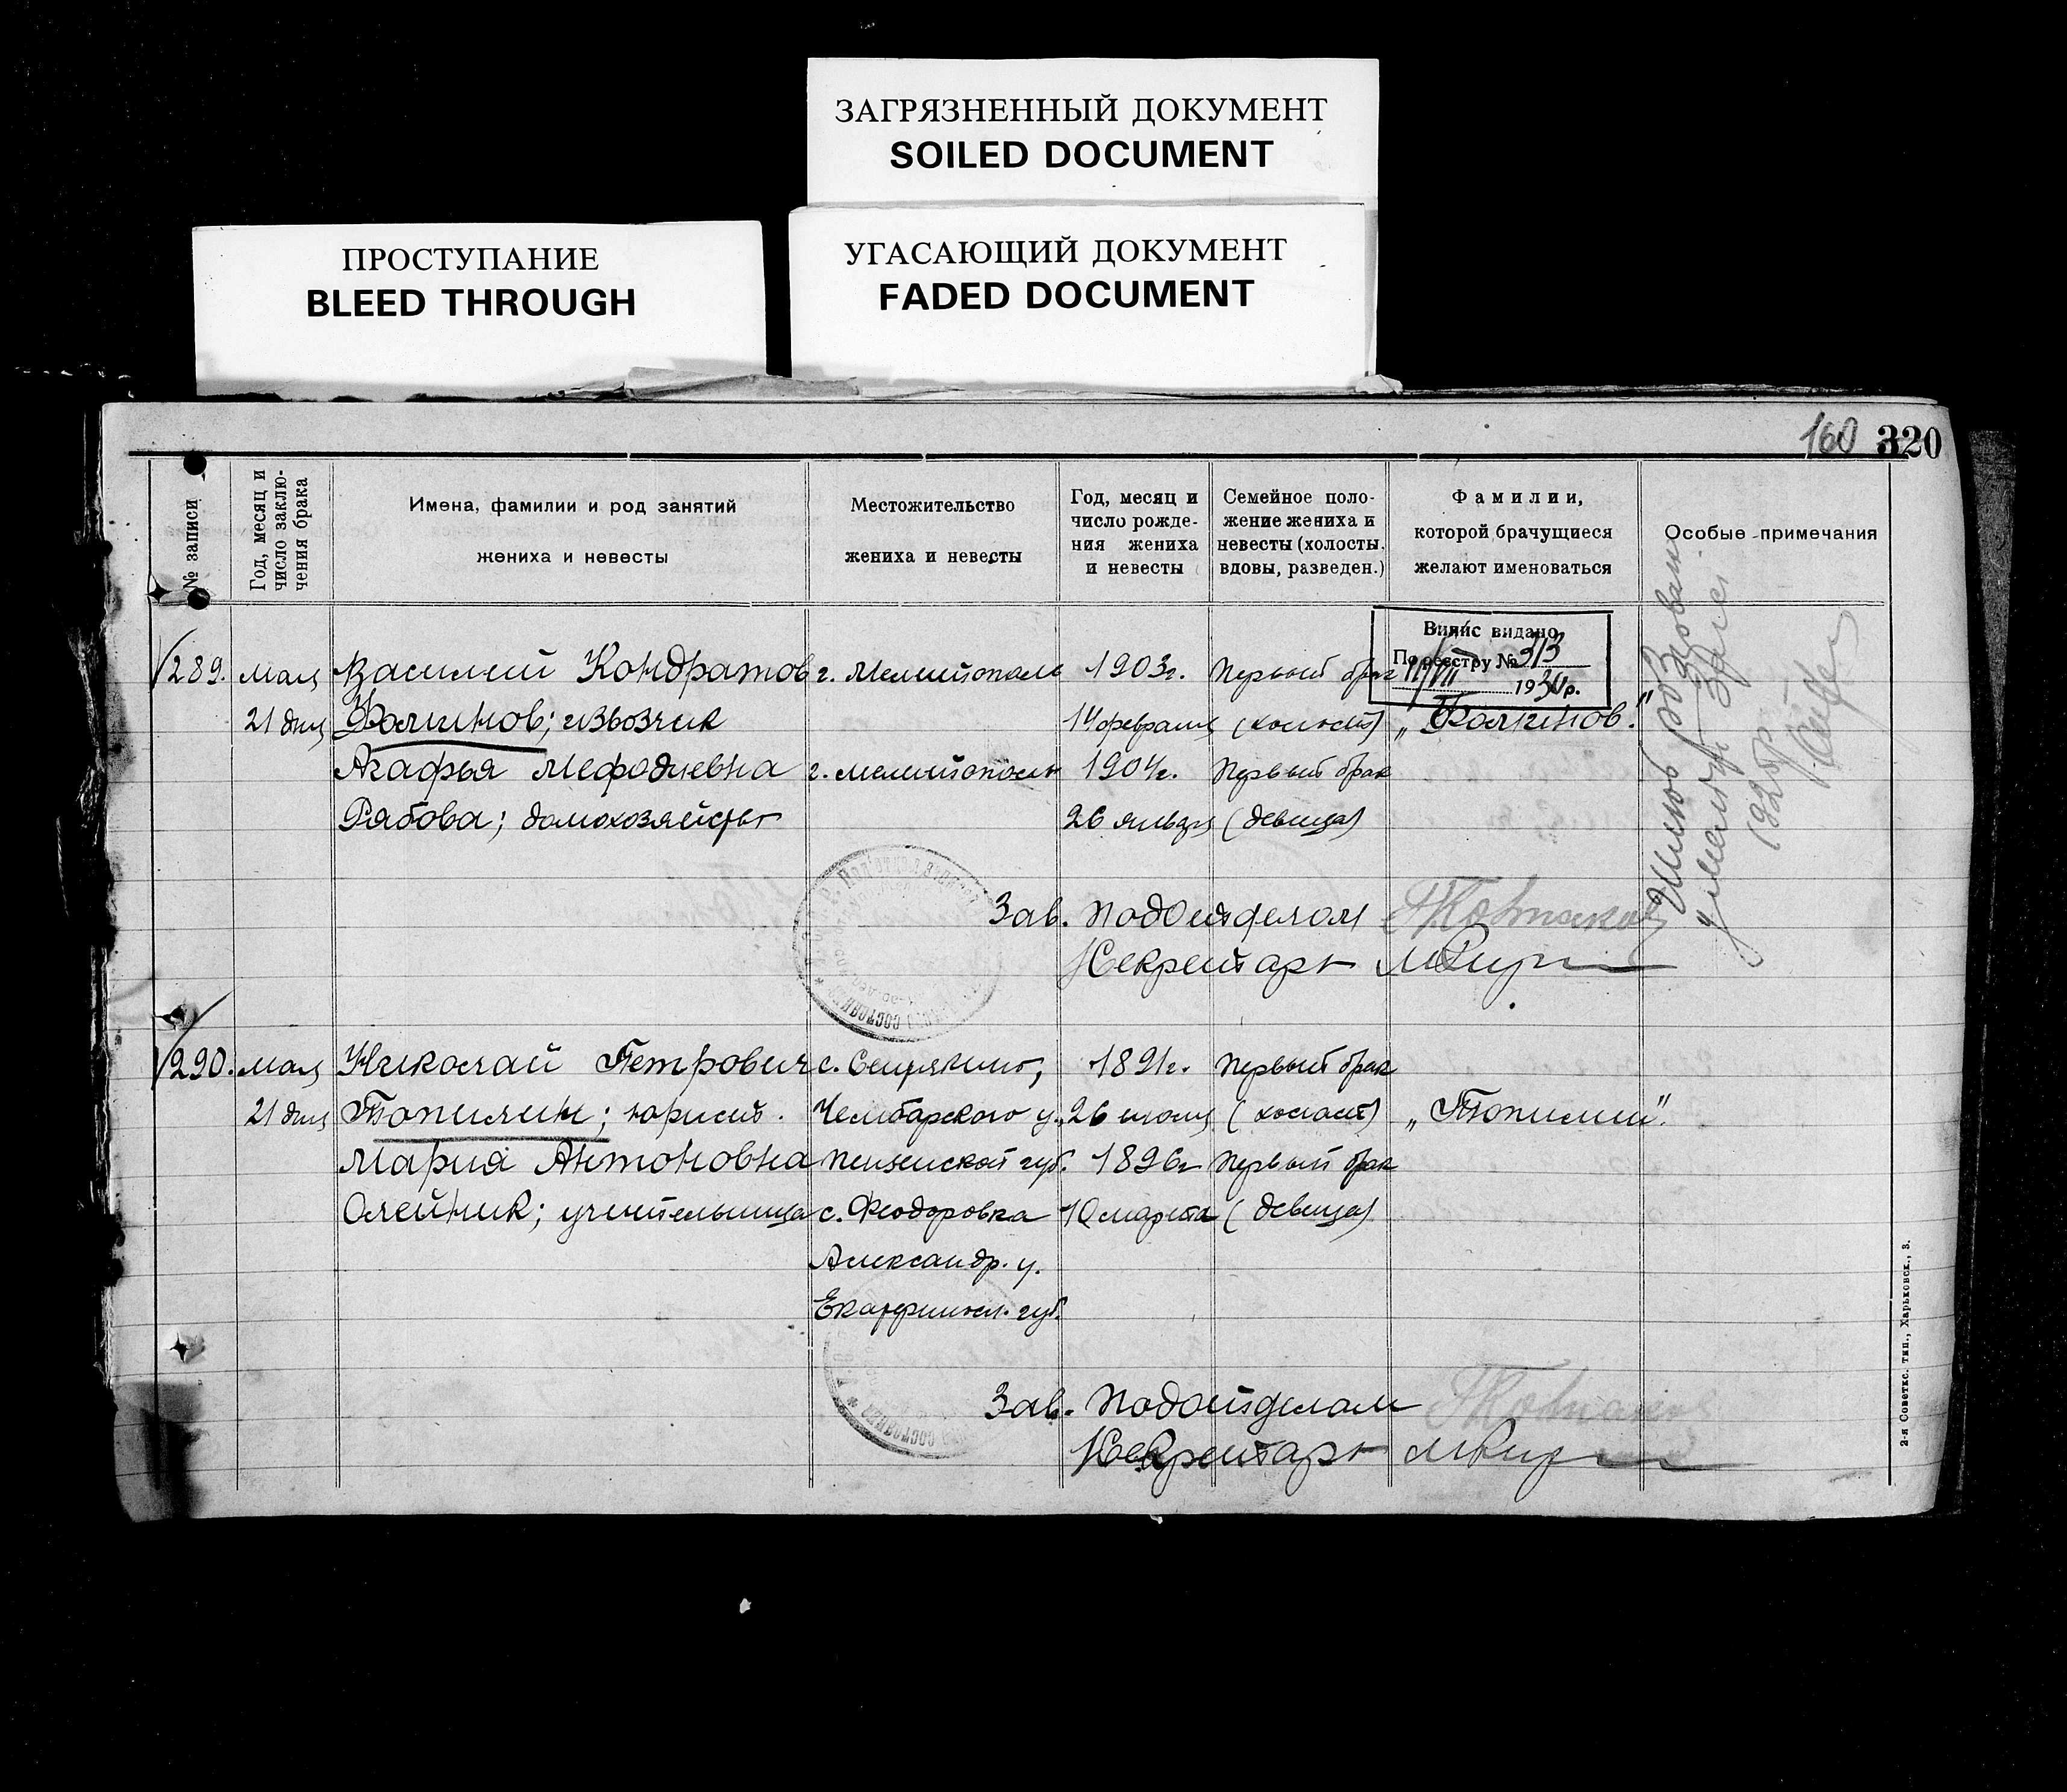 ЗАГРЯЗНЕННЫЙ ДОКУМЕНТ
SOILED DOCUMENT
ПРОСТУПАНИЕ
BLEED THROUGH
УГАСАЮЩИЙ ДОКУМЕНТ
FADED DOCUMENT
160 320
№ записи
Год, месяц и
число заклю-
чения брака
Имена, фамилии и род занятий
жениха и невесты
Местожительство
жениха и невесты
Год, месяц и
число рожде-
ния жениха
и невесты
Семейное поло-
жение жениха и
невесты (холосты,
вдовы, разведен.)
Фамилии,
которой брачущиеся
желают именоваться
Особые примечания
Випіс видано
По реєстру № 313
11/VII 1930р.
289. мая Василий Кондратов г. Мелитополь 1903г. Первый брак
21 дня Фалинов; извозчик 14 февраля (холост) „Фалинов."
Агафья Мефодиевна г. Мелитополь 1904г. Первый брак
Рябова; домохозяйст 26 января (девица)
Зав. Подотделом
Секретарь
290. мая Николай Петрович с. 1891г. Первый брак
21 дня Топилин; юрист. Чембарского у. 26 (холост) „Топилин".
Мария Антоновна Пензенской губ. 1896г Первый брак
Олейник; учительница с. Феодоровка 10 марта (девица)
Александр. у.
Екатеринсл. губ.
Зав. Подотделом
Секретарь
2-я Советск. тип., Харьковск., 3.